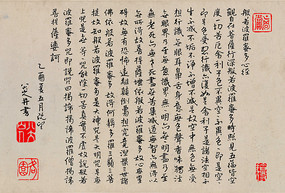 般若波羅蜜多心經
觀自在菩薩行深般若波羅蜜多時照見五蘊皆空
度一切苦厄舍利子色不異空空不異色色即是空空
即是色受想行識亦復如是舍利子是諸法空相不
生不滅不垢不淨不增不減是故空中無色無受
想行識無眼耳鼻舌身意無色聲香味觸法無
眼界乃至無意識界無無明亦無無明盡乃至
無老死亦無老死盡無苦集滅道無智亦無得
以無所得故菩提薩埵依般若波羅蜜多故心無罣
礙無罣礙故無有恐怖遠離顛倒夢想究竟涅槃三世諸
佛依般若波羅蜜多故得阿耨多羅三藐三菩
提故知般若波羅蜜多是大神咒是大明咒是無
上咒是無等等咒能除一切苦真實不虛故說般若
波羅蜜多咒即說咒曰揭諦揭諦波羅揭諦波羅僧揭諦
菩提薩婆訶
乙酉夏五月